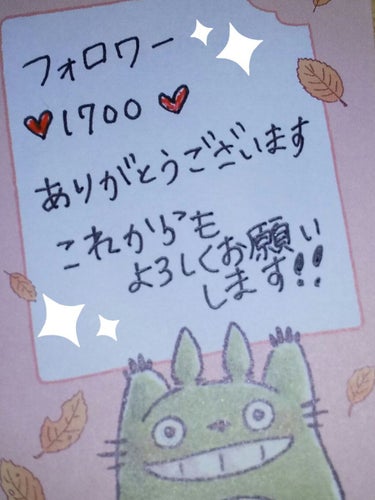 フォロワー
♥1700♥
ありがとうございます
これからも
よろしくお願い
します!!